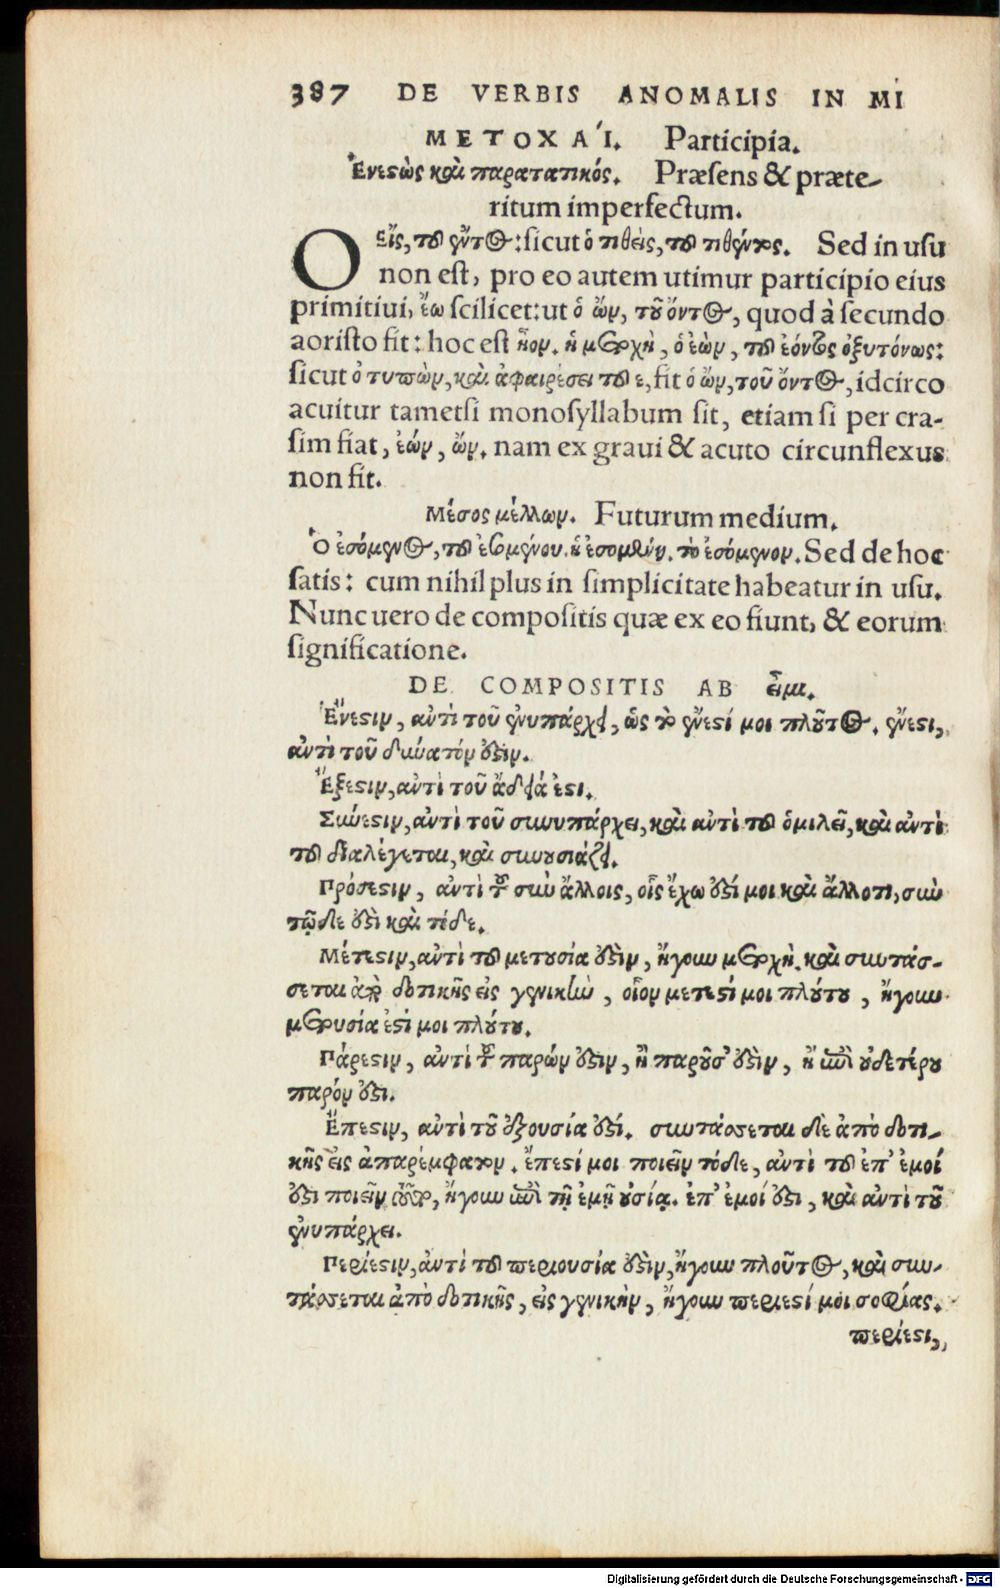 387 DE VERBIS ANOMALIS IN MI
ΜΕΤΟΧΑΊ. Participia.
Ἐνεϛὼς καὶ παρατατικός. Præsens & præte-
ritum imperfectum.
Ο εἷς, τοῦ ἕντος: sicut ὁ τιθεὶς, τοῦ τιθέντος. Sed in usu
non est, pro eo autem utimur participio eius
primitiui, ἔω scilicet: ut ὁ ὤν, τοῦ ὄντος, quod à secundo
aoristo fit: hoc est ἦον. ἡ μετοχὴ, ὁ ἐὼν, τοῦ ἐόντος ὀξυτόνως:
sicut ὁ τυπὼν, καὶ ἀφαιρέσει τοῦ ε, fit ὁ ὤν, τοῦ ὄντος, idcirco
acuitur tametsi monosyllabum sit, etiam si per cra-
sim fiat, ἐών, ὤν. nam ex graui & acuto circunflexus
non fit.
Μέσος μέλλων. Futurum medium.
Ὁ ἐσόμενος, τοῦ ἐσομένου. ἡ ἐσομένη. τὸ ἐσόμενον. Sed de hoc
satis: cum nihil plus in simplicitate habeatur in usu.
Nunc uero de compositis quæ ex eo fiunt, & eorum
significatione.
DE COMPOSITIS AB εἶμι.
Ἔνεϛιν, ἀντὶ τοῦ ἐνυπάρχει, ὡς τὸ ἔνεϛί μοι πλοῦτος. ἔνεϛι,
ἀντὶ τοῦ δυνατόν ἐϛιν.
Ἔξεϛιν, ἀντὶ τοῦ ἄδεια ἐϛι.
Σύνεϛιν, ἀντὶ τοῦ συνυπάρχει, καὶ ἀντὶ τοῦ ὁμιλεῖ, καὶ ἀντὶ
τοῦ διαλέγεται, καὶ συνουσιάζει.
Πρόσεϛιν, ἀντὶ τοῦ σὺν ἄλλοις, οἷς ἔχω ἐϛί μοι καὶ ἄλλο τι, σὺν
τῷδε ἐϛὶ καὶ τόδε.
Μέτεϛιν, ἀντὶ τοῦ μετουσία ἐϛὶν, ἤγουν μετοχὴ. καὶ συντάσ-
σεται ἀπὸ δοτικῆς εἰς γενικὴν, οἷον μέτεϛί μοι πλούτου, ἤγουν
μετουσία ἐϛί μοι πλούτου.
Πάρεϛιν, ἀντὶ τοῦ παρών ἐϛιν, ἢ παροῦσ' ἐϛὶν, ἢ ἐπὶ οὐδετέρου
παρόν ἐϛι.
Ἔπεϛιν, ἀντὶ τοῦ ἐξουσία ἐϛί. συντάσσεται δὲ ἀπὸ δοτι-
κῆς εἰς ἀπαρέμφατον. ἔπεϛί μοι ποιεῖν τόδε, ἀντὶ τοῦ ἐπ' ἐμοί
ἐϛι ποιεῖν τοῦτο, ἤγουν ἐπὶ τῇ ἐμῇ οὐσίᾳ. ἐπ' ἐμοί ἐϛι, καὶ ἀντὶ τοῦ
ἐνυπάρχει.
Περίεϛιν, ἀντὶ τοῦ περιουσία ἐϛὶν, ἤγουν πλοῦτος, καὶ συν-
τάσσεται ἀπὸ δοτικῆς, εἰς γενικὴν, ἤγουν περίεϛί μοι σοφίας.
περίεϛι,
Digitalisierung gefördert durch die Deutsche Forschungsgemeinschaft - DFG